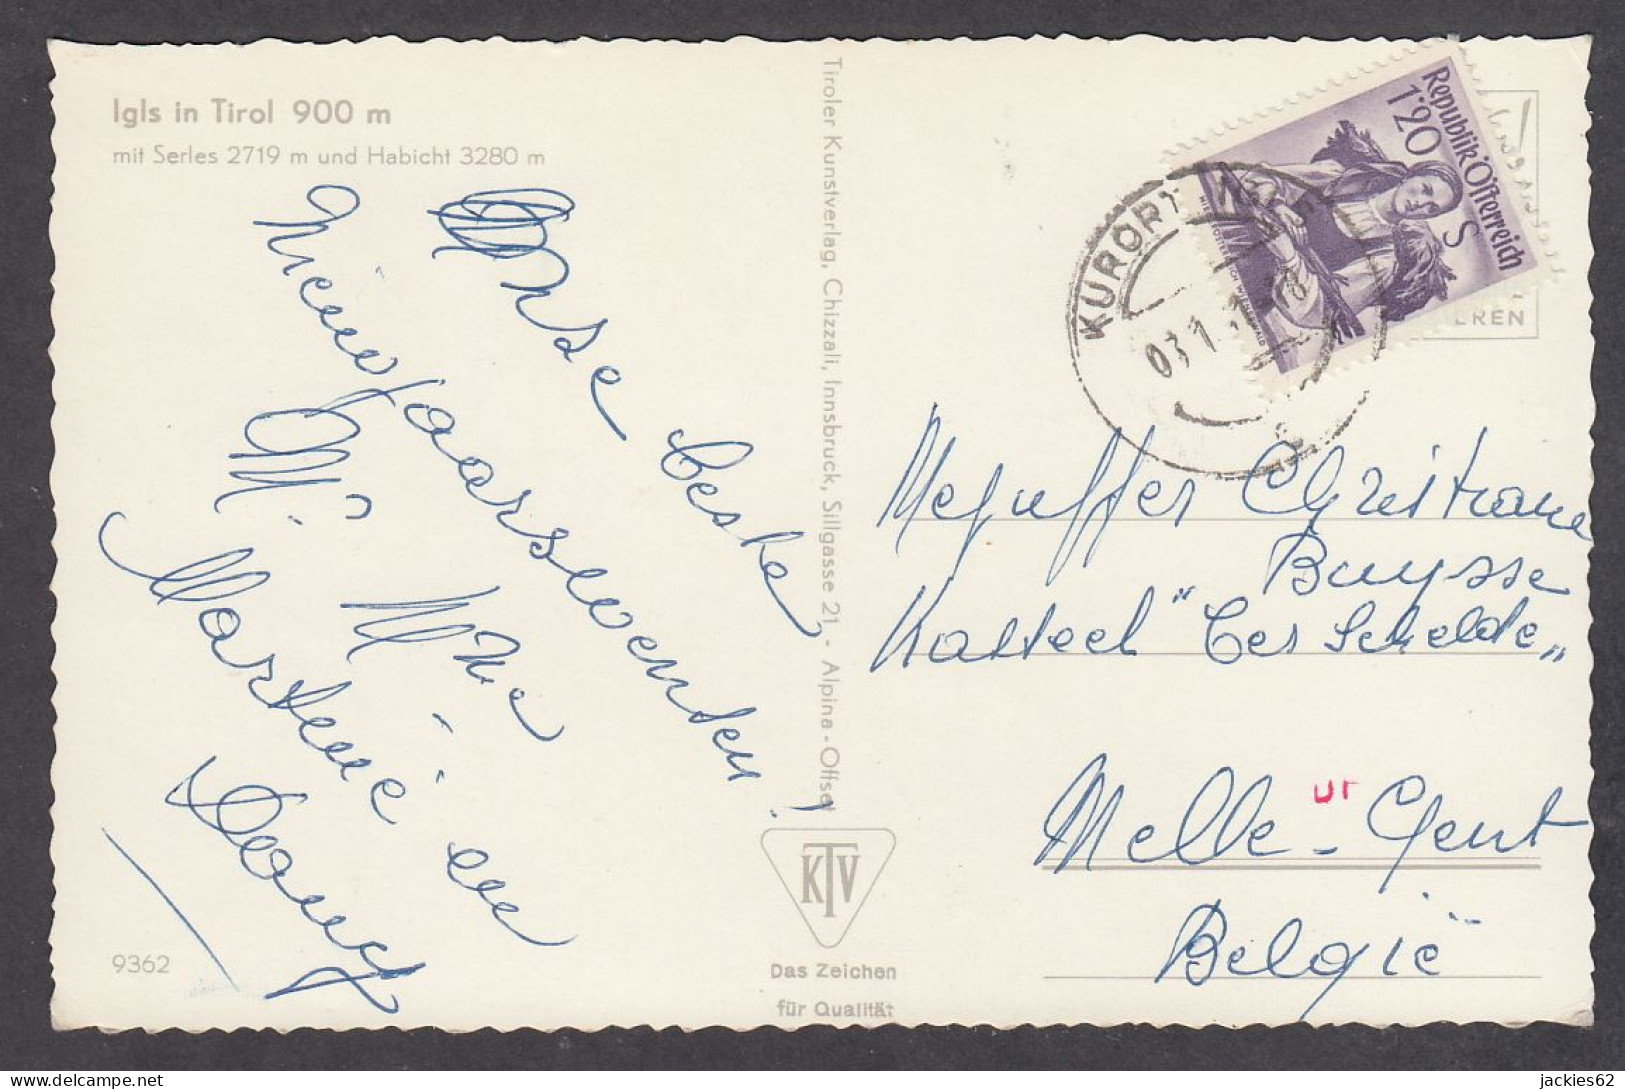 Igls in Tirol 900 m
mit Serles 2719 m und Habicht 3280 m
Onze beste
Nieuwjaarswensen!
Mr. Mme
Martens en
Tiroler Kunstverlag, Chizzali, Innsbruck, Sillgasse 21 - Alpina-Offset
KTV
Das Zeichen
für Qualität
9362
Republik Österreich
1·20
S
KURORT IGLS
EREN
Mejuffer Christiane
Buysse
Kasteel "Ter Schelde"
Melle - Gent
België
jackies62